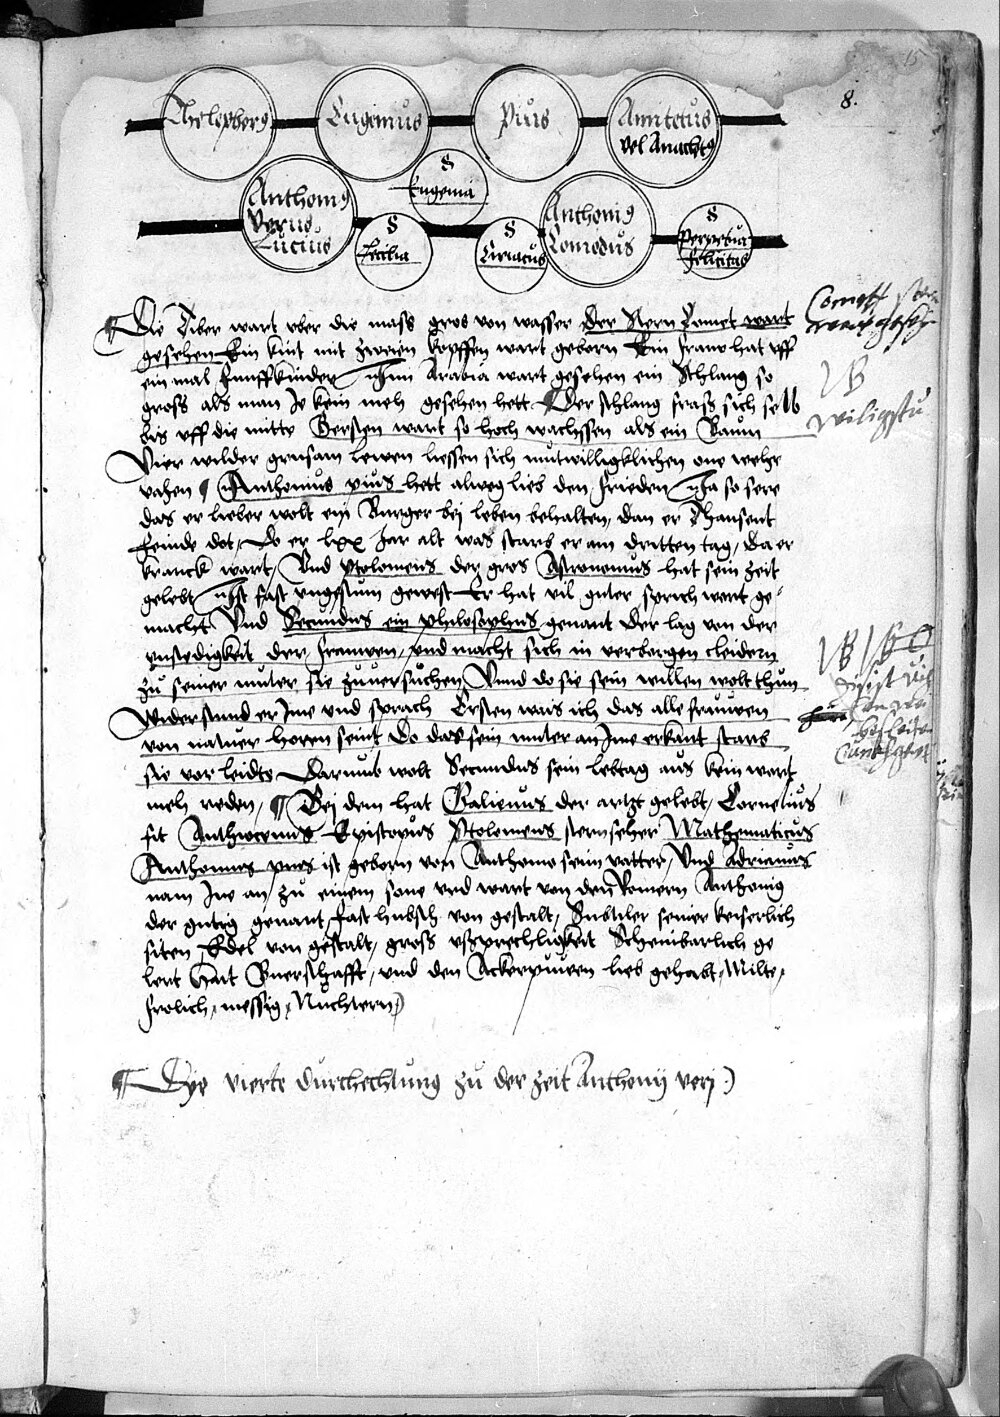 15
8.
Thelesphorg
Eugenius
Pius
Annitetus
vel Anachtg
S
Eugenia
Anthonig
Verus
Lucius
S
Cecilia
S
Ciriacus
Anthonig
Comodus
S
Perpetua
felicitas
Die Tiber wart vber die mass gros von wasser Der Stern Comet wart
gesehen Ein kint mit zweien kopffen wart geborn Ein frauw hat vff
ein mal funff kinder Inn Arabia wart gesehen ein Schlang so
gross als man Je kein meh gesehen hett Der schlang frass sich selb
bis vff die mitte Gersten wart so hoch wachssen als ein Baum
Vier wilder grusam lewen liessen sich mutwilligklichen one wehr
vahen Anthonius pius hett alweg lieb den frieden Ja so sere
das er lieber wolt ein Burger bej leben behalten, dan er Thausent
feinde dot, Do er lxx Jar alt was starb er am dritten tag, da er
kranck wart, Vnd Ptolomeus der gros Astronomus hat sein zeit
gelebt, Ist fast vngstum gewest Er hat vil guter sprich wort ge
macht Vnd Secundus ein philosophus genant Der lag von der
vnstedigkeit der frauwen, vnd macht sich in verborgen cleidern
zu seiner muter sie zuuersuchen Vnnd do sie sein willen wolt thun
Widerstund er Ime vnd sprach Ersten wais ich das alle frauwen
von natuer horen seint Do das sein muter an Ime erkant starb
sie vor leidte Darumb wolt Secundus sein lebtag aus kein wort
meh reden, Bej dem hat Galienus der artzt gelebt, Cornelius
fit Episcopus Ptolomeus sternseher Mathematicus
Anthonius pius ist geborn von Anthonio seim vatter, Vnd Adrianus
nam Ine an, zu einem sone vnd wart von den Romern Anthonig
der gutig genant, fast hubsch von gestalt, Subtiler seiner keiserlich
siten Edel von gestalt, gross vssprechligkeit Scheinbarlich ge
lert Hat Buerschafft, vnd den Ackerpuwen lieb gehabt, Milte,
frolich, messig, Nuchtern
Dye vierte durchechtung zu der zeit Anthonij verj
Comett
NB
NB